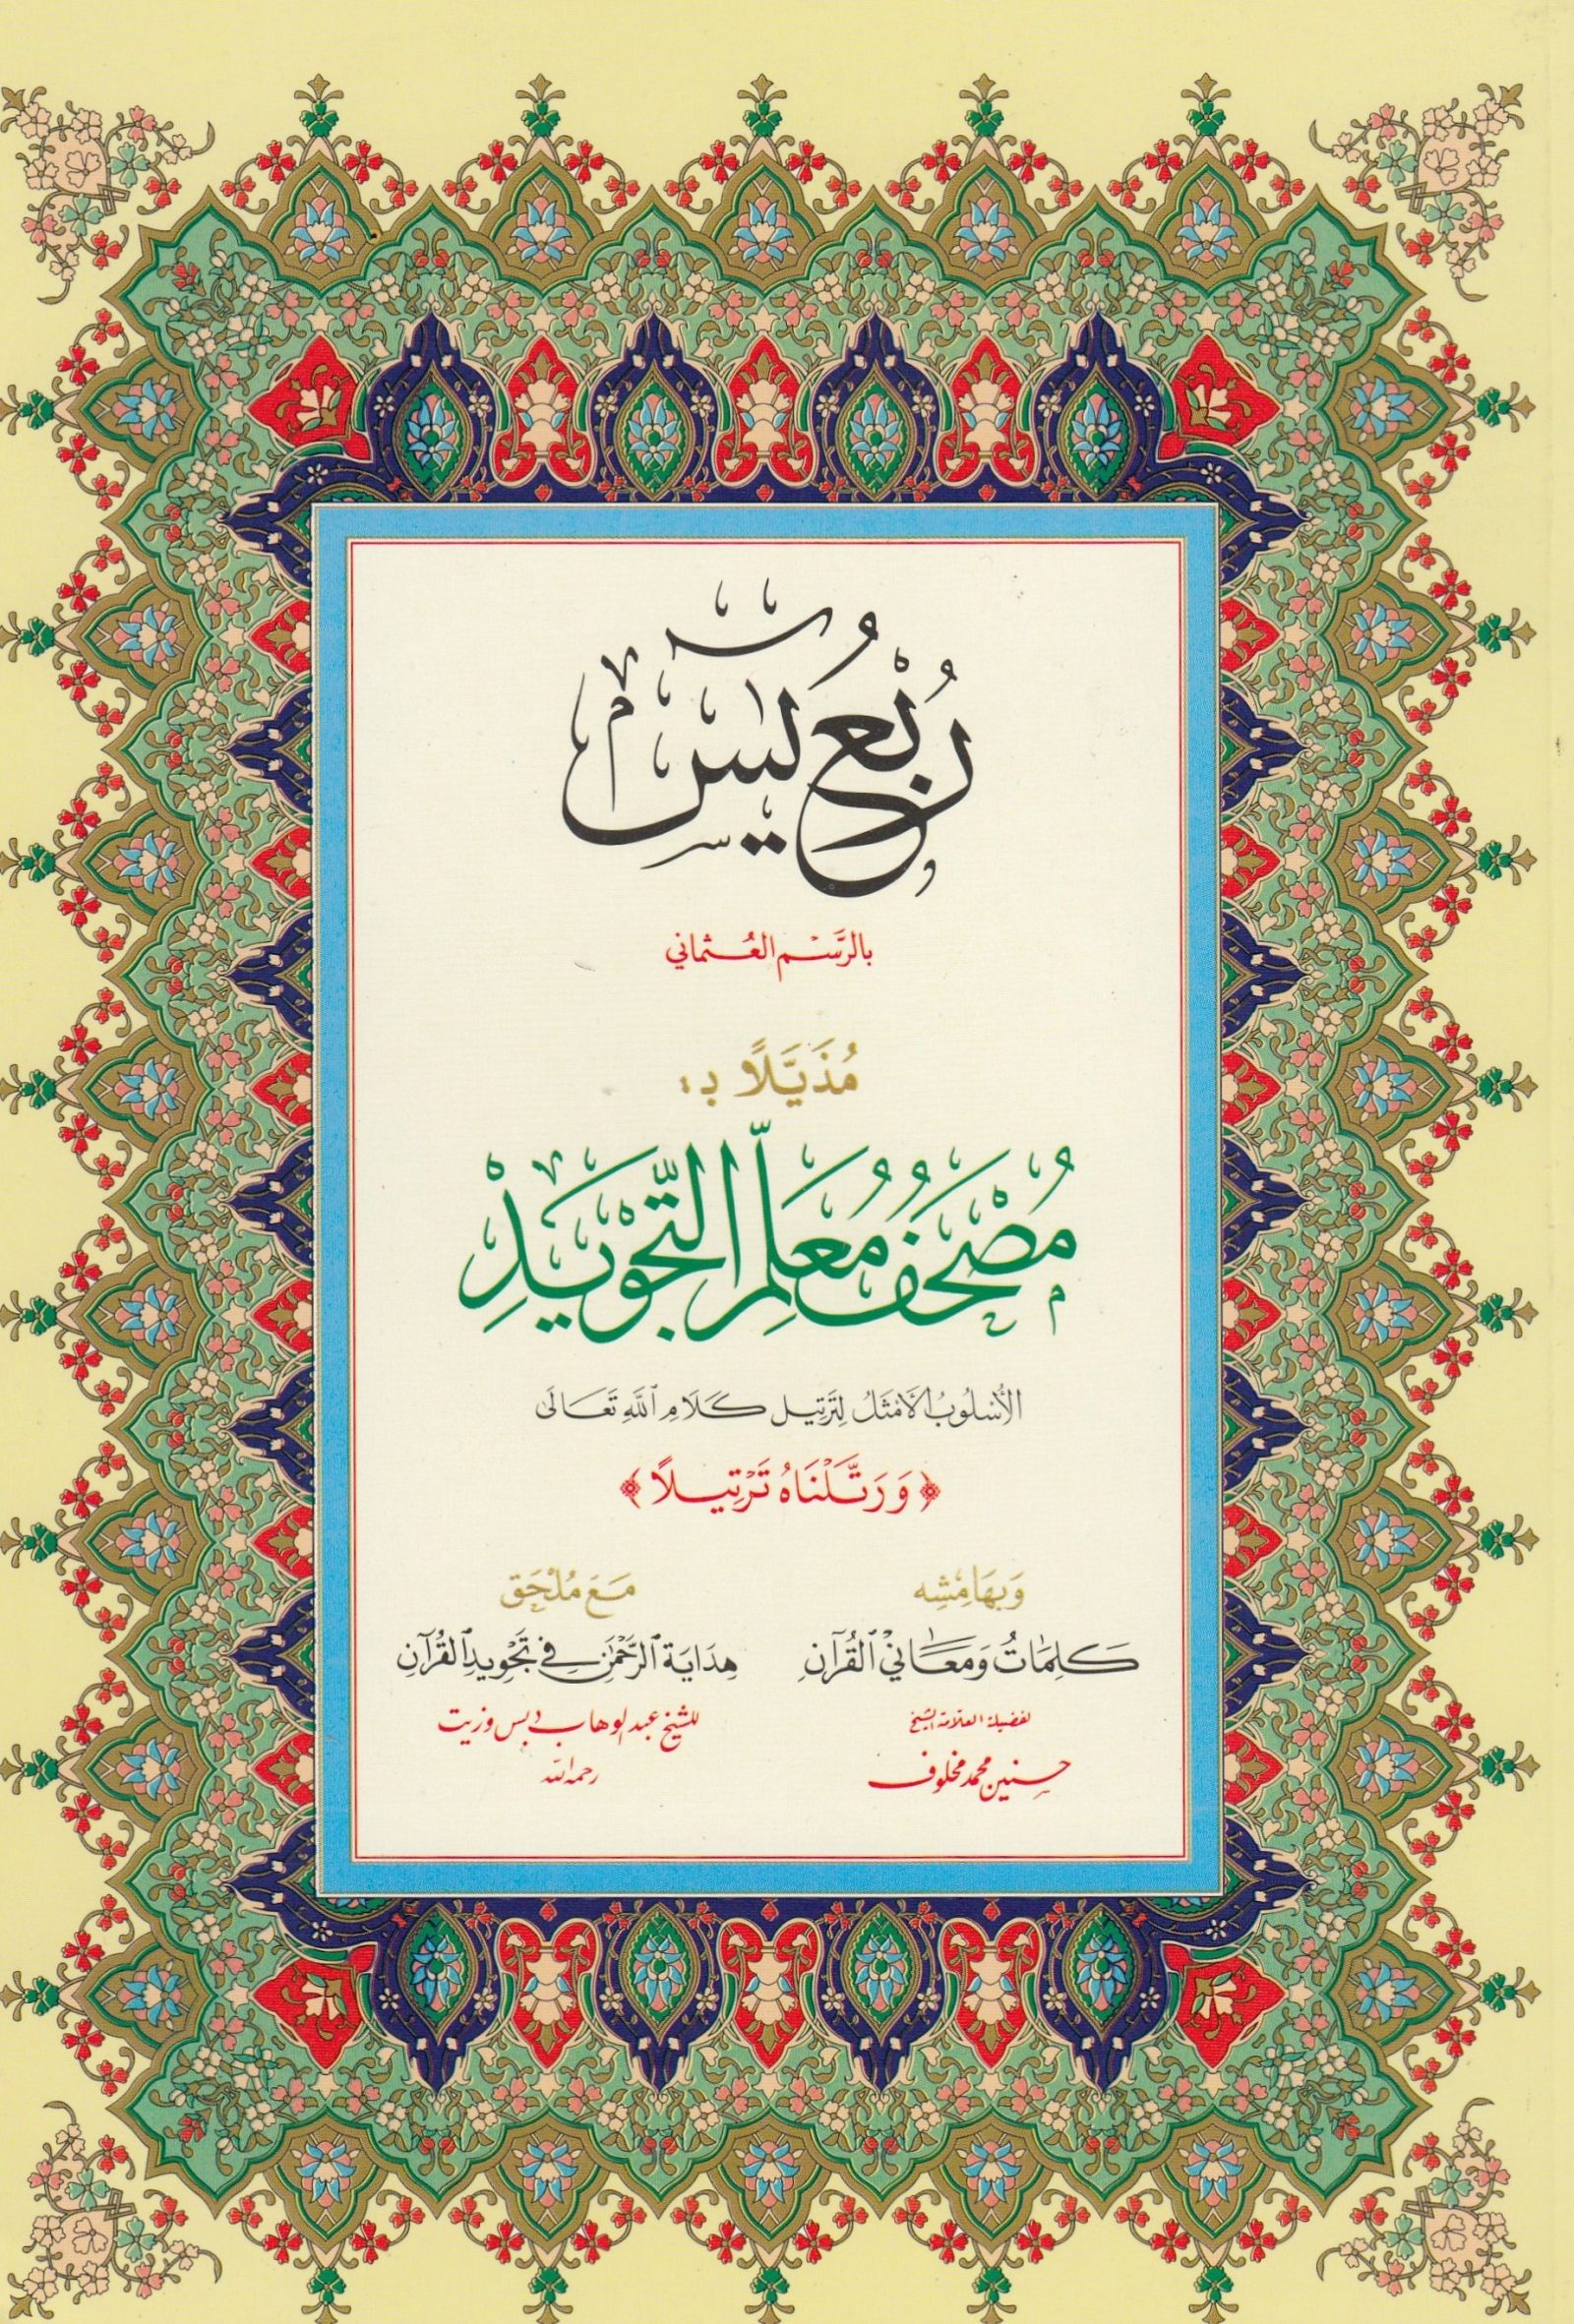 رُبْعُ يٰسٓ
بالرَّسْم العُثماني
مُذَيَّلًا بـ:
مُصْحَفُ مُعَلِّمِ التَّجْوِيدِ
الأُسْلُوبُ الأَمْثَلُ لِتَرتِيل كَلَامِ ٱللَّهِ تَعَالَى
﴿وَرَتَّلْنَاهُ تَرْتِيلًا﴾
وَبهَامِشِه
كَلِمَاتُ وَمَعَاني ٱلْقُرْآنِ
لفضيلة العلامة الشيخ
حسنين محمد مخلوف
مَعَ مُلْحَق
هِدَايَة ٱلرَّحْمٰن في تَجْوِيدِ ٱلقُرْآنِ
للشيخ عبد الوهاب دبس وزيت
رحمه الله